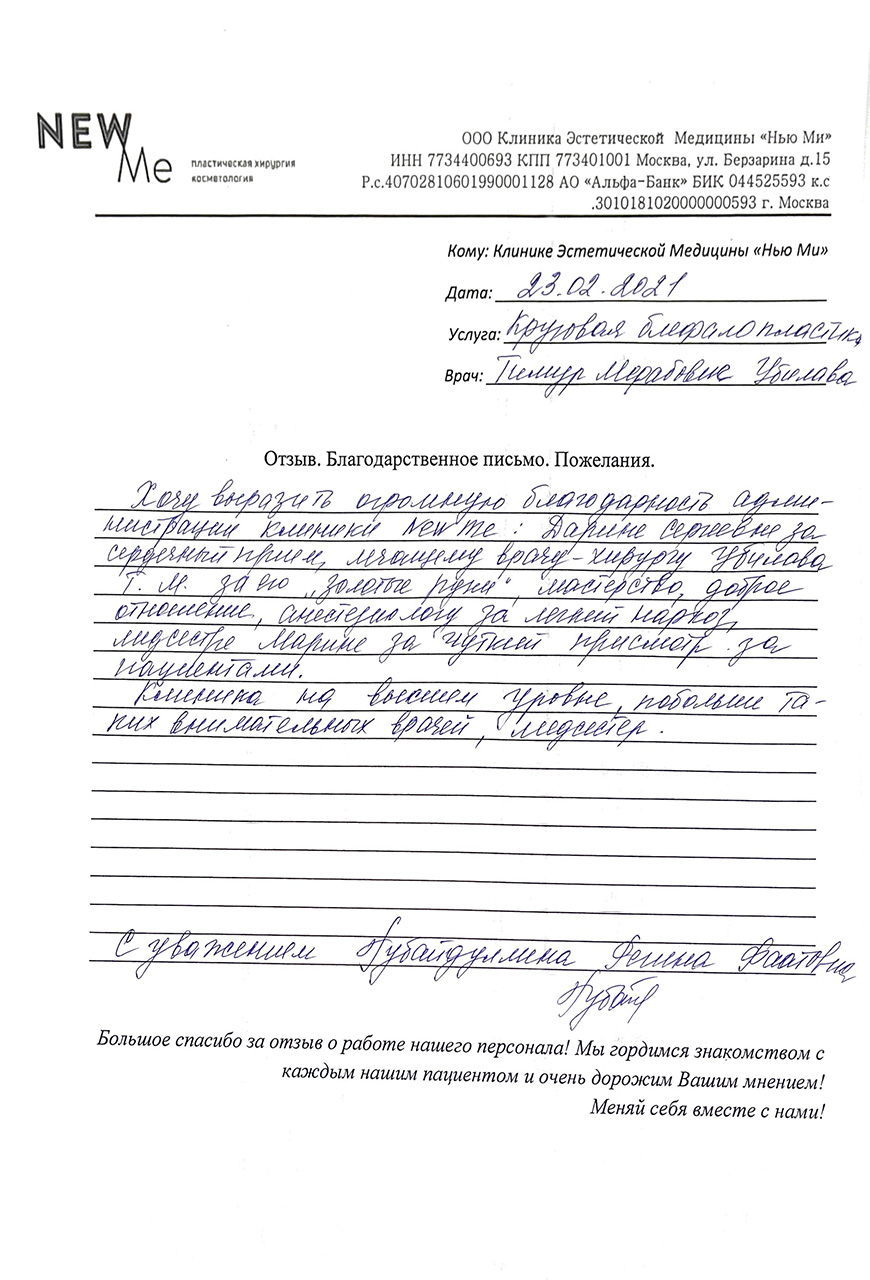 NEW
Me
пластическая хирургия
косметология
ООО Клиника Эстетической Медицины «Нью Ми»
ИНН 7734400693 КПП 773401001 Москва, ул. Берзарина д.15
Р.с.40702810601990001128 АО «Альфа-Банк» БИК 044525593 к.с
.3010181020000000593 г. Москва
Кому: Клинике Эстетической Медицины «Нью Ми»
Дата: 23.02.2021
Услуга: Круговая блефаропластика
Врач: Тимур Мерабович Убилава
Отзыв. Благодарственное письмо. Пожелания.
Хочу выразить огромную благодарность адми-
нистрации клиники New me: Дарине Сергеевне за
сердечный прием, лечащему врачу-хирургу Убилава
Т. М. за его „золотые руки", мастерство, доброе
отношение, анестезиологу за легкий наркоз,
медсестре Марине за чуткий присмотр за
пациентами.
Клиника на высшем уровне, побольше та-
ких внимательных врачей, медсестер.
С уважением Губайдуллина Регина
Большое спасибо за отзыв о работе нашего персонала! Мы гордимся знакомством с
каждым нашим пациентом и очень дорожим Вашим мнением!
Меняй себя вместе с нами!